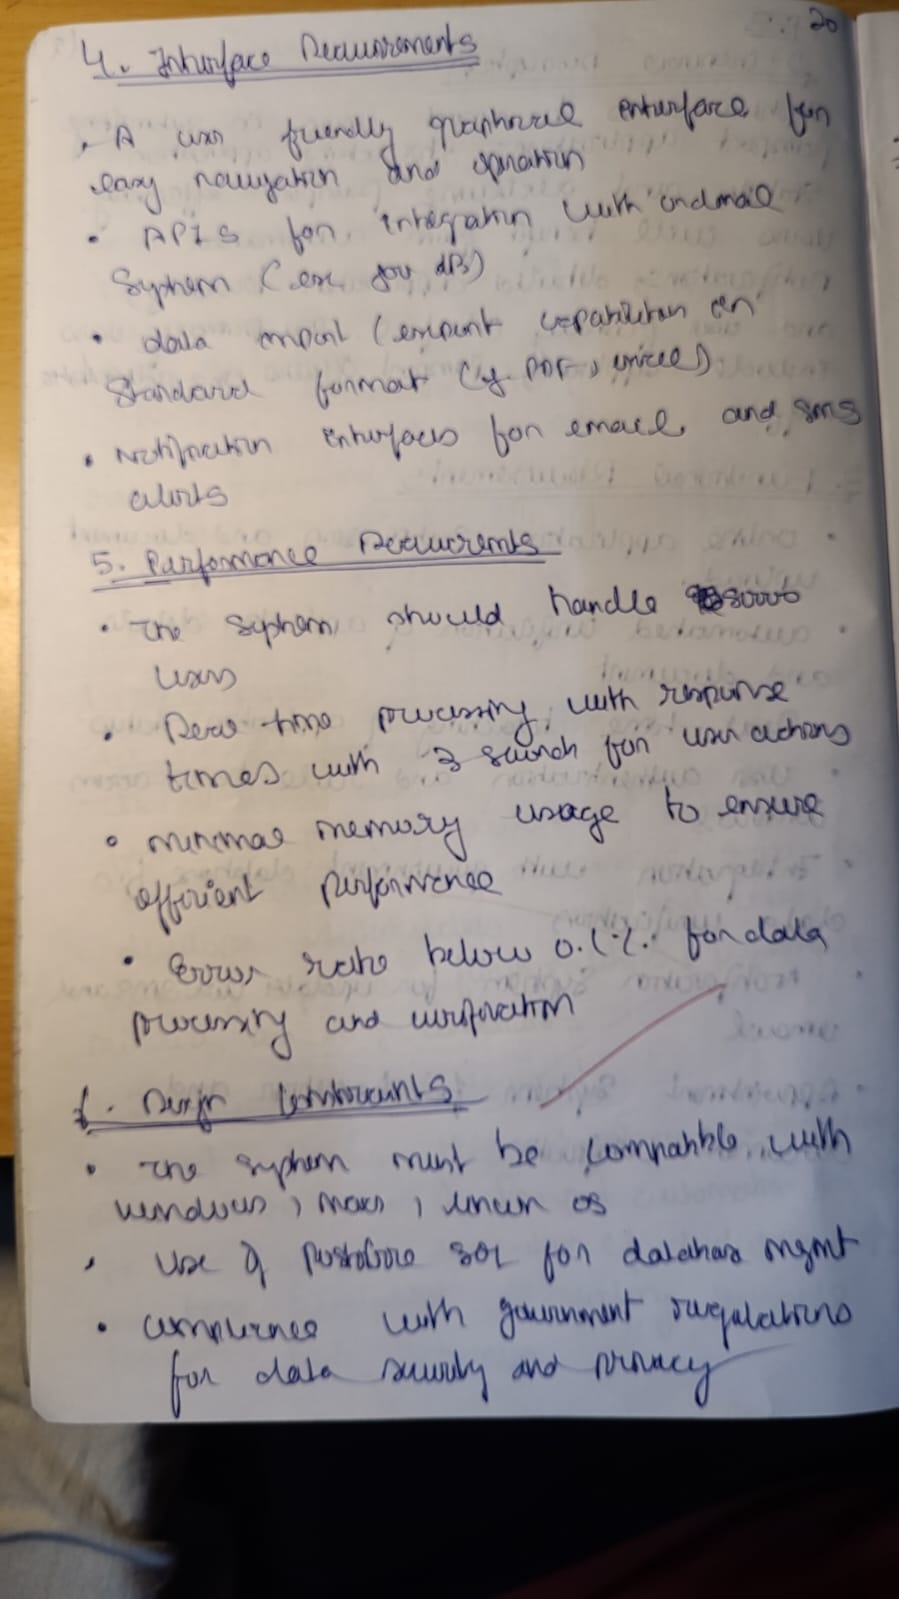 20
4. Interface Requirements
• A user friendly graphical interface for
easy navigation and operation
• APIs for integration with
System (ex gov dBs)
• data import (export capabilities in
Standard format (eg PDF, excel)
• Notification interfaces for email and sms
alerts
5. Performance Requirements
• The system should handle 8000
users
• Real time processing with response
times with 3 second for user actions
• minimal memory usage to ensure
efficient performance
• Error rate below 0.1% for data
processing and verification
Design Constraints
• The system must be compatible with
windows, macs, linux os
• Use of SQL for database mgmt
• compliance with government regulations
for data security and privacy